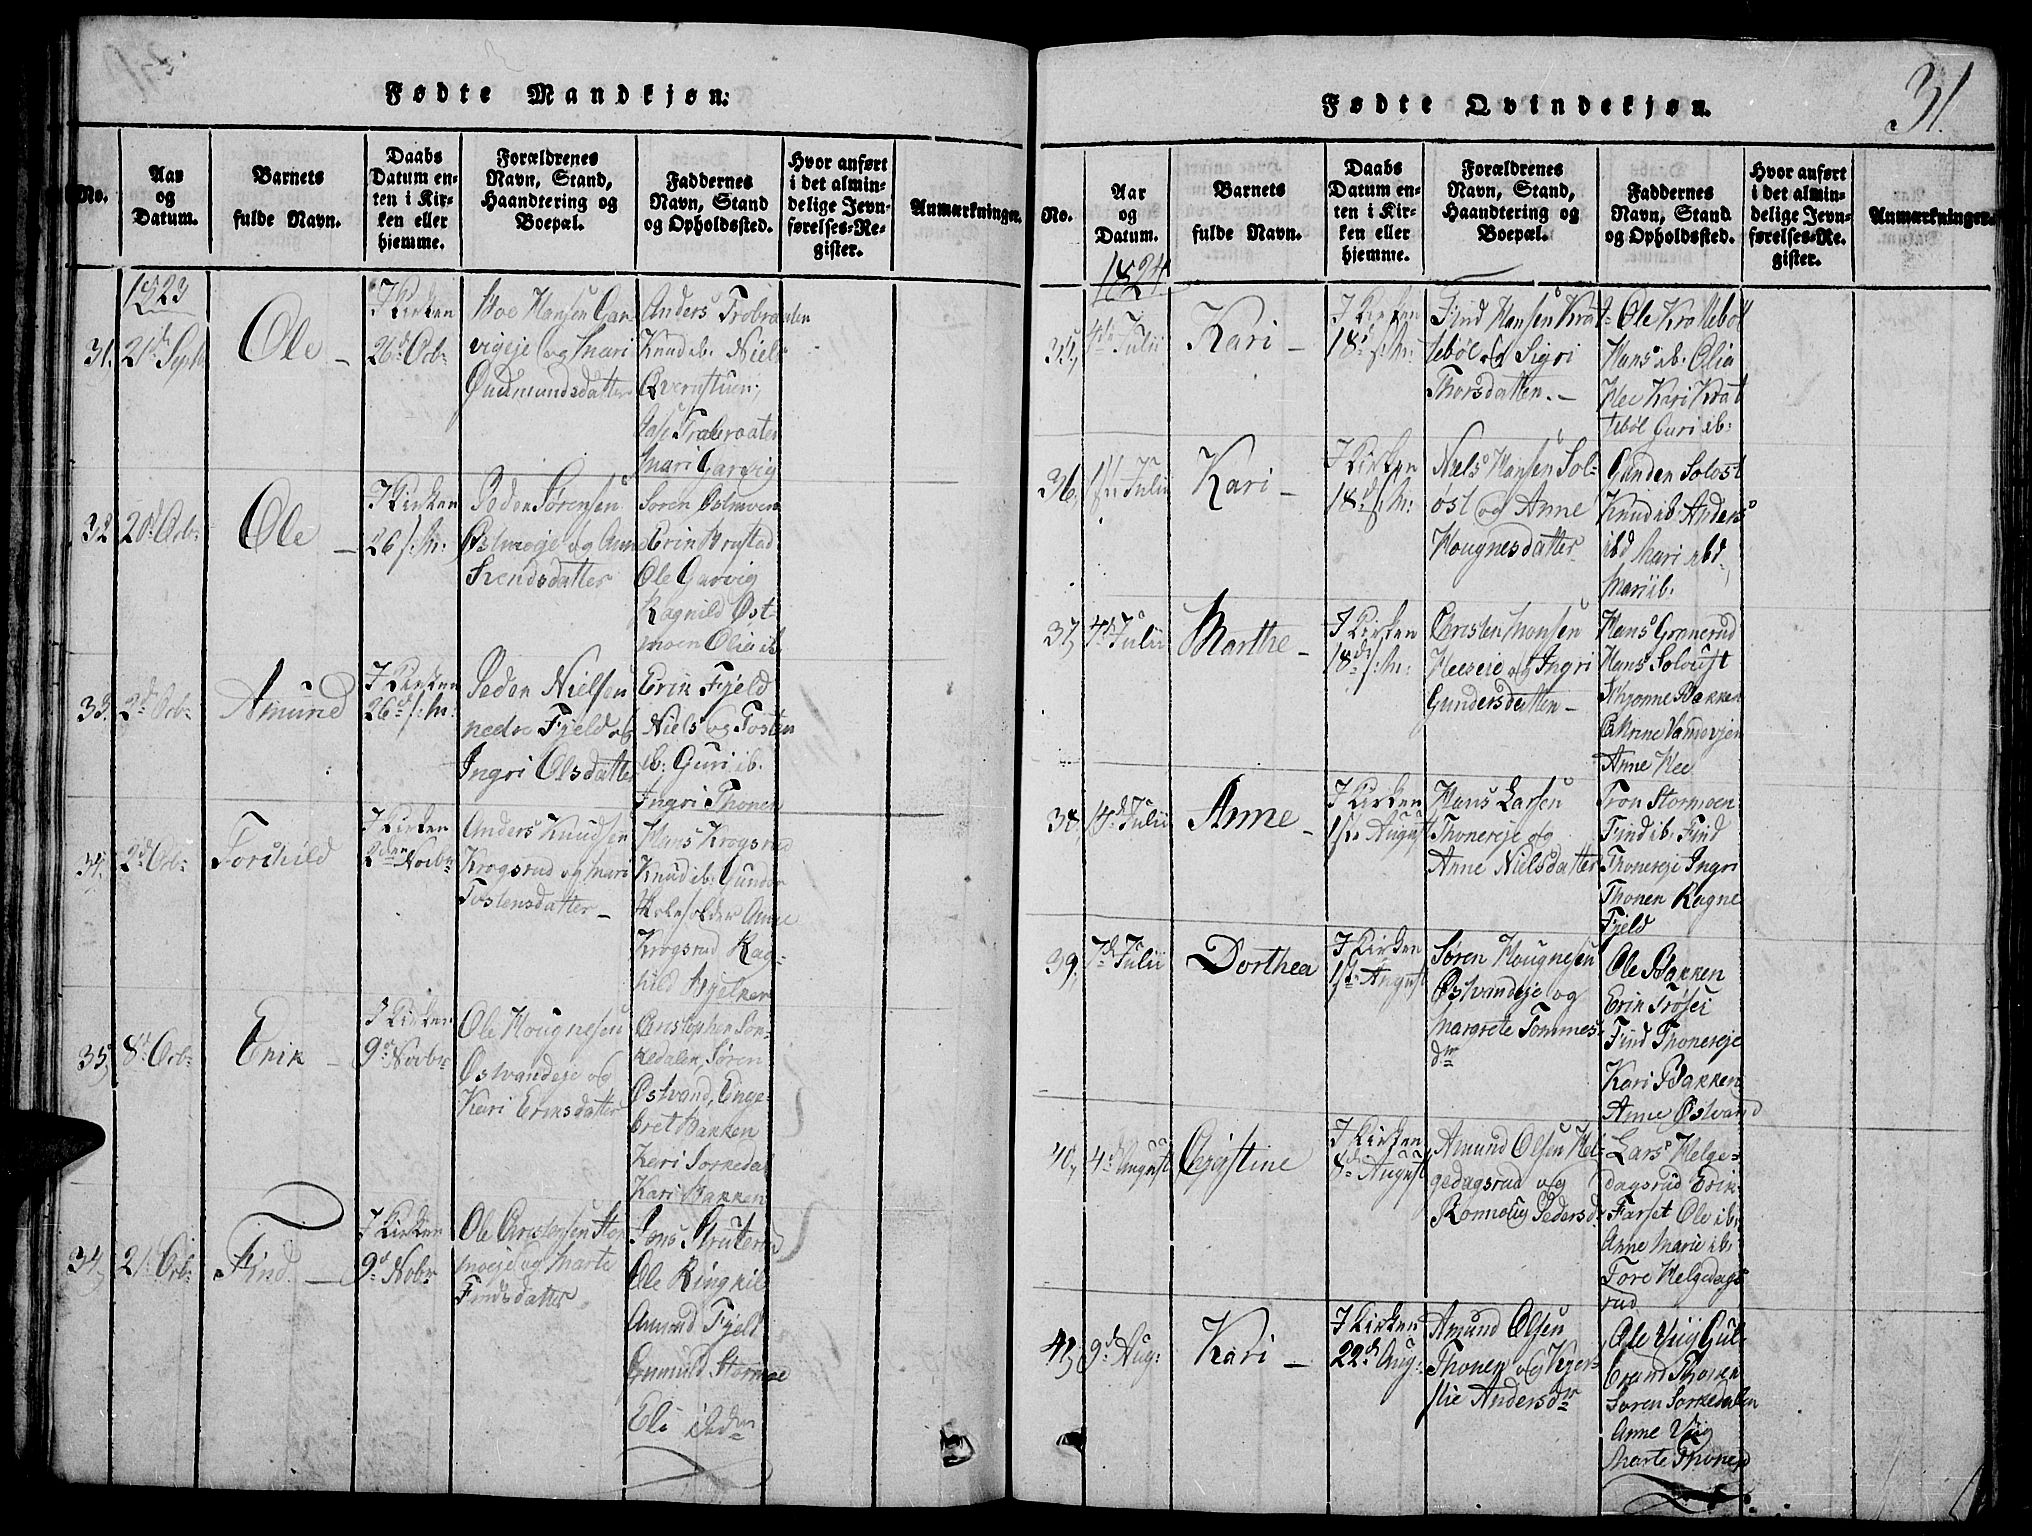 Fødte Mandkjøn:
No.
Aar og Datum.
Barnets fulde Navn.
Daabs Datum enten i Kirken eller hjemme.
Forældrenes Navn, Stand, Haandtering og Boepæl.
Faddernes Navn, Stand og Opholdssted.
Hvor anført i det almindelige Jevnførelses-Register.
Anmærkninger.
1823
31.
Ole
I Kirken
26d Ocb:
Hansen Gar
vigeje og Mari
Gudmundsdatter
Anders Trobraaten
Knud ib: Niels
Qvernstuen,
Mari Garvig
32
20d Ocb:
Ole
I Kirken
26 s: M:
Peder Sørensen
Østmoeje og Anne
Svendsdatter
Soren Østmoen
Erik Brustad
Ole Garvig
Ragnild Øst
moen Olia ib
33.
2d Ocb:
Amund
I Kirken
26d s: M:
Peder Nielsen
nedre Fjeld og
Ingri Olsdatter
Erik Fjeld
Niels og Tosten
ib: Guri ib.
Ingri Thonen
34.
2d Ocb:
Torchild
I Kirken
2den Novbr
Anders Knudsen
Krogsrud og Mari
Tostensdatter
Hans Krogsrud
Knud ib: Gunder
Anne
Krogsrud Rag-
hild
35,
8d Ocb:
Erik
I Kirken
9d Novbr
Ole Hougnesen
Østvandeje og
Kari Eriksdatter
Christopher Sor-
kedalen, Søren
Østvand, Enge-
bret Bakken
Kari Sorkedal
Kari Bakken
34,
21d Ocb:
Find.
I Kirken
9d Nobr
Ole Christensen Stor
moeje og Marte
Findsdatter
Jens Struterud
Ole Ringkil
Amund Fjeld
Gunnuld Stormoe
Eli ibden
31.
Fødte Qvindekjøn.
No.
Aar og Datum.
Barnets fulde Navn.
Daabs Datum enten i Kirken eller hjemme.
Forældrenes Navn, Stand, Haandtering og Boepæl.
Faddernes Navn, Stand og Opholdssted.
Hvor anført i det almindelige Jevnførelses-Re. gister.
Anmærkninger.
1824
35,
4de Julii
Kari
I Kirken
18d s: M:
Find Hansen Krat-
tebøl og Sigri
Thorsdatter.
Ole Krattebøl
Hans ib: Olia
Hee Kari Krat
tebøl Guri ib:
36,
1ste Julii
Kari
I Kirken
18d s: M:
Niels Hansen Sol-
ost og Anne
Hougnesdatter
Gunder Solost
Knud ib: Anders
ibd Mari ibd,
Mari ib.
37,
4d Julii
Marthe
I Kirken
18d s: M:
Christen Hansen
Heeeie og Ingri
Gundersdatter
Hans Grønerud
Hans Solvist
Bakken
Anne Hee
38,
4d Julii
Anne
I Kirken
1ste August
Hans Larsen
Thonereje og
Anne Nielsdatter
Tron Stormoen
Find ib: Find
Thonereje Ingri
Thonen Ragne
Fjeld
39,
7d Julii
Dorthea
I Kirken
1ste August
Søren Hougnesen
Østvandeje og
Margrete Tommes
dr
Ole Bakken
Erik Trøsei
Find Thonereje
Kari Bakken
Anne Østvand
40,
4d August
Christine
I Kirken
8d August
Amund Olsen Hel-
gedagsrud og
Ronnoug Pedersd.
Lars Helge-
dagsrud Erik
Farset Ole ib:
Anne Marie ib:
Tore Helgedags
rud
41,
9d Aug:
Kari
I Kirken
22d Aug:
Amund Olsen
Thonen og Kjer-
stie Andersdr
Ole Viig Gul-
brand Thonen
Soren Sorkedalen
Anne Viig
Marte Thonen